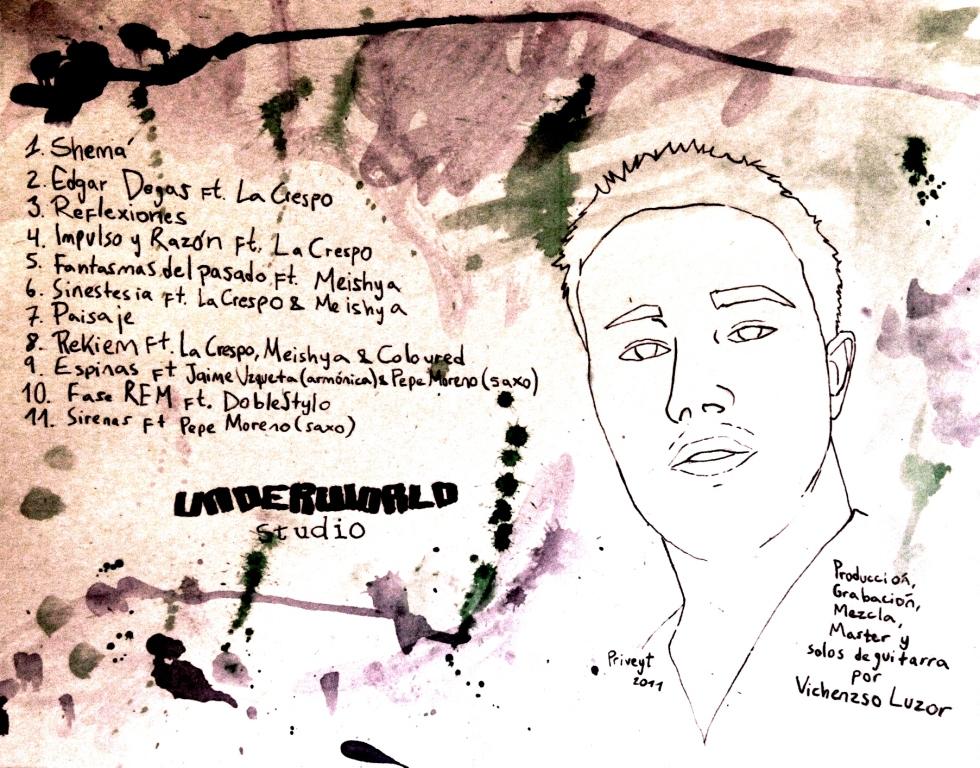 1. Shemá
2. Edgar Degas ft. La Crespo
3. Reflexiones
4. Impulso y Razón ft. La Crespo
5. Fantasmas del pasado ft. Meishya
6. Sinestesia ft. La Crespo & Meishya
7. Paisaje
8. Rekiem ft. La Crespo, Meishya & Coloured
9. Espinas ft Jaime Uzqueta (armónica) & Pepe Moreno (saxo)
10. Fase REM ft. DobleStylo
11. Sirenas ft Pepe Moreno (saxo)
UNDERWORLD
studio
Producción,
Grabación,
Mezcla,
Master y
solos de guitarra
por
Vichenzso Luzor
Priveyt
2011